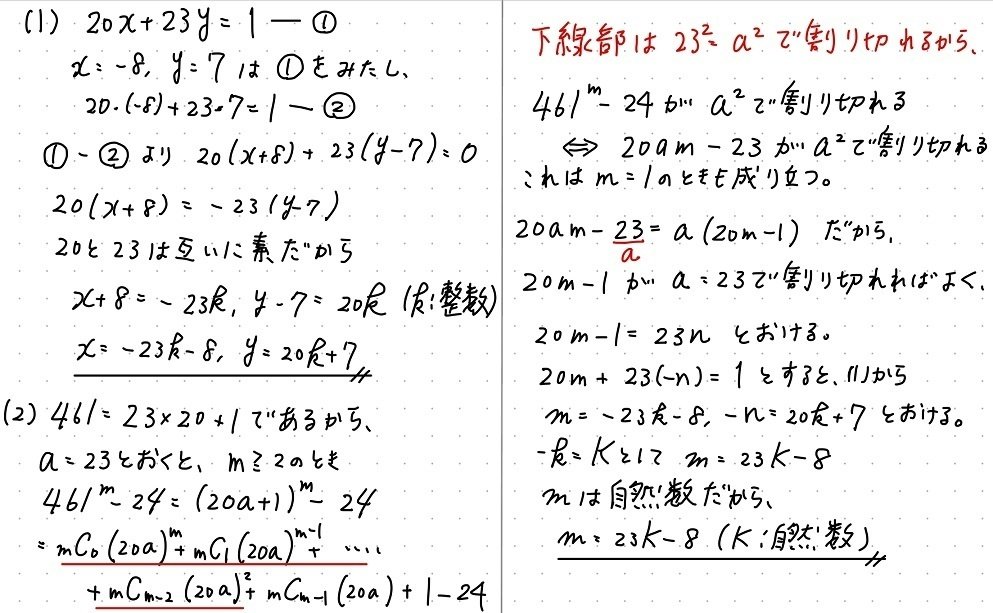 (1) 20x+23y=1 ー ①
x=-8, y=7 は ① をみたし、
20・(-8)+23・7=1 ー ②
① - ② より 20(x+8)+23(y-7)=0
20(x+8)=-23(y-7)
20と23は互いに素だから
x+8=-23k, y-7=20k (k:整数)
x=-23k-8, y=20k+7
(2) 461=23×20+1であるから、
a=23とおくと、m≧2のとき
461^m-24=(20a+1)^m-24
=mC₀(20a)^m+mC₁(20a)^{m-1}+‥‥
+mC_{m-2}(20a)²+mC_{m-1}(20a)+1-24
下線部は 23²=a² で割り切れるから、
461^m-24が a²で割り切れる
⇔ 20am-23がa²で割り切れる
これは m=1のときも成り立つ。
20am-23=a(20m-1) だから、
a
20m-1 が a=23で割り切れればよく、
20m-1=23n とおける。
20m+23(-n)=1 とすると、(1)から
m=-23k-8, -n=20k+7 とおける。
-k=Kとして m=23K-8
mは自然数だから、
m=23K-8 (K:自然数)